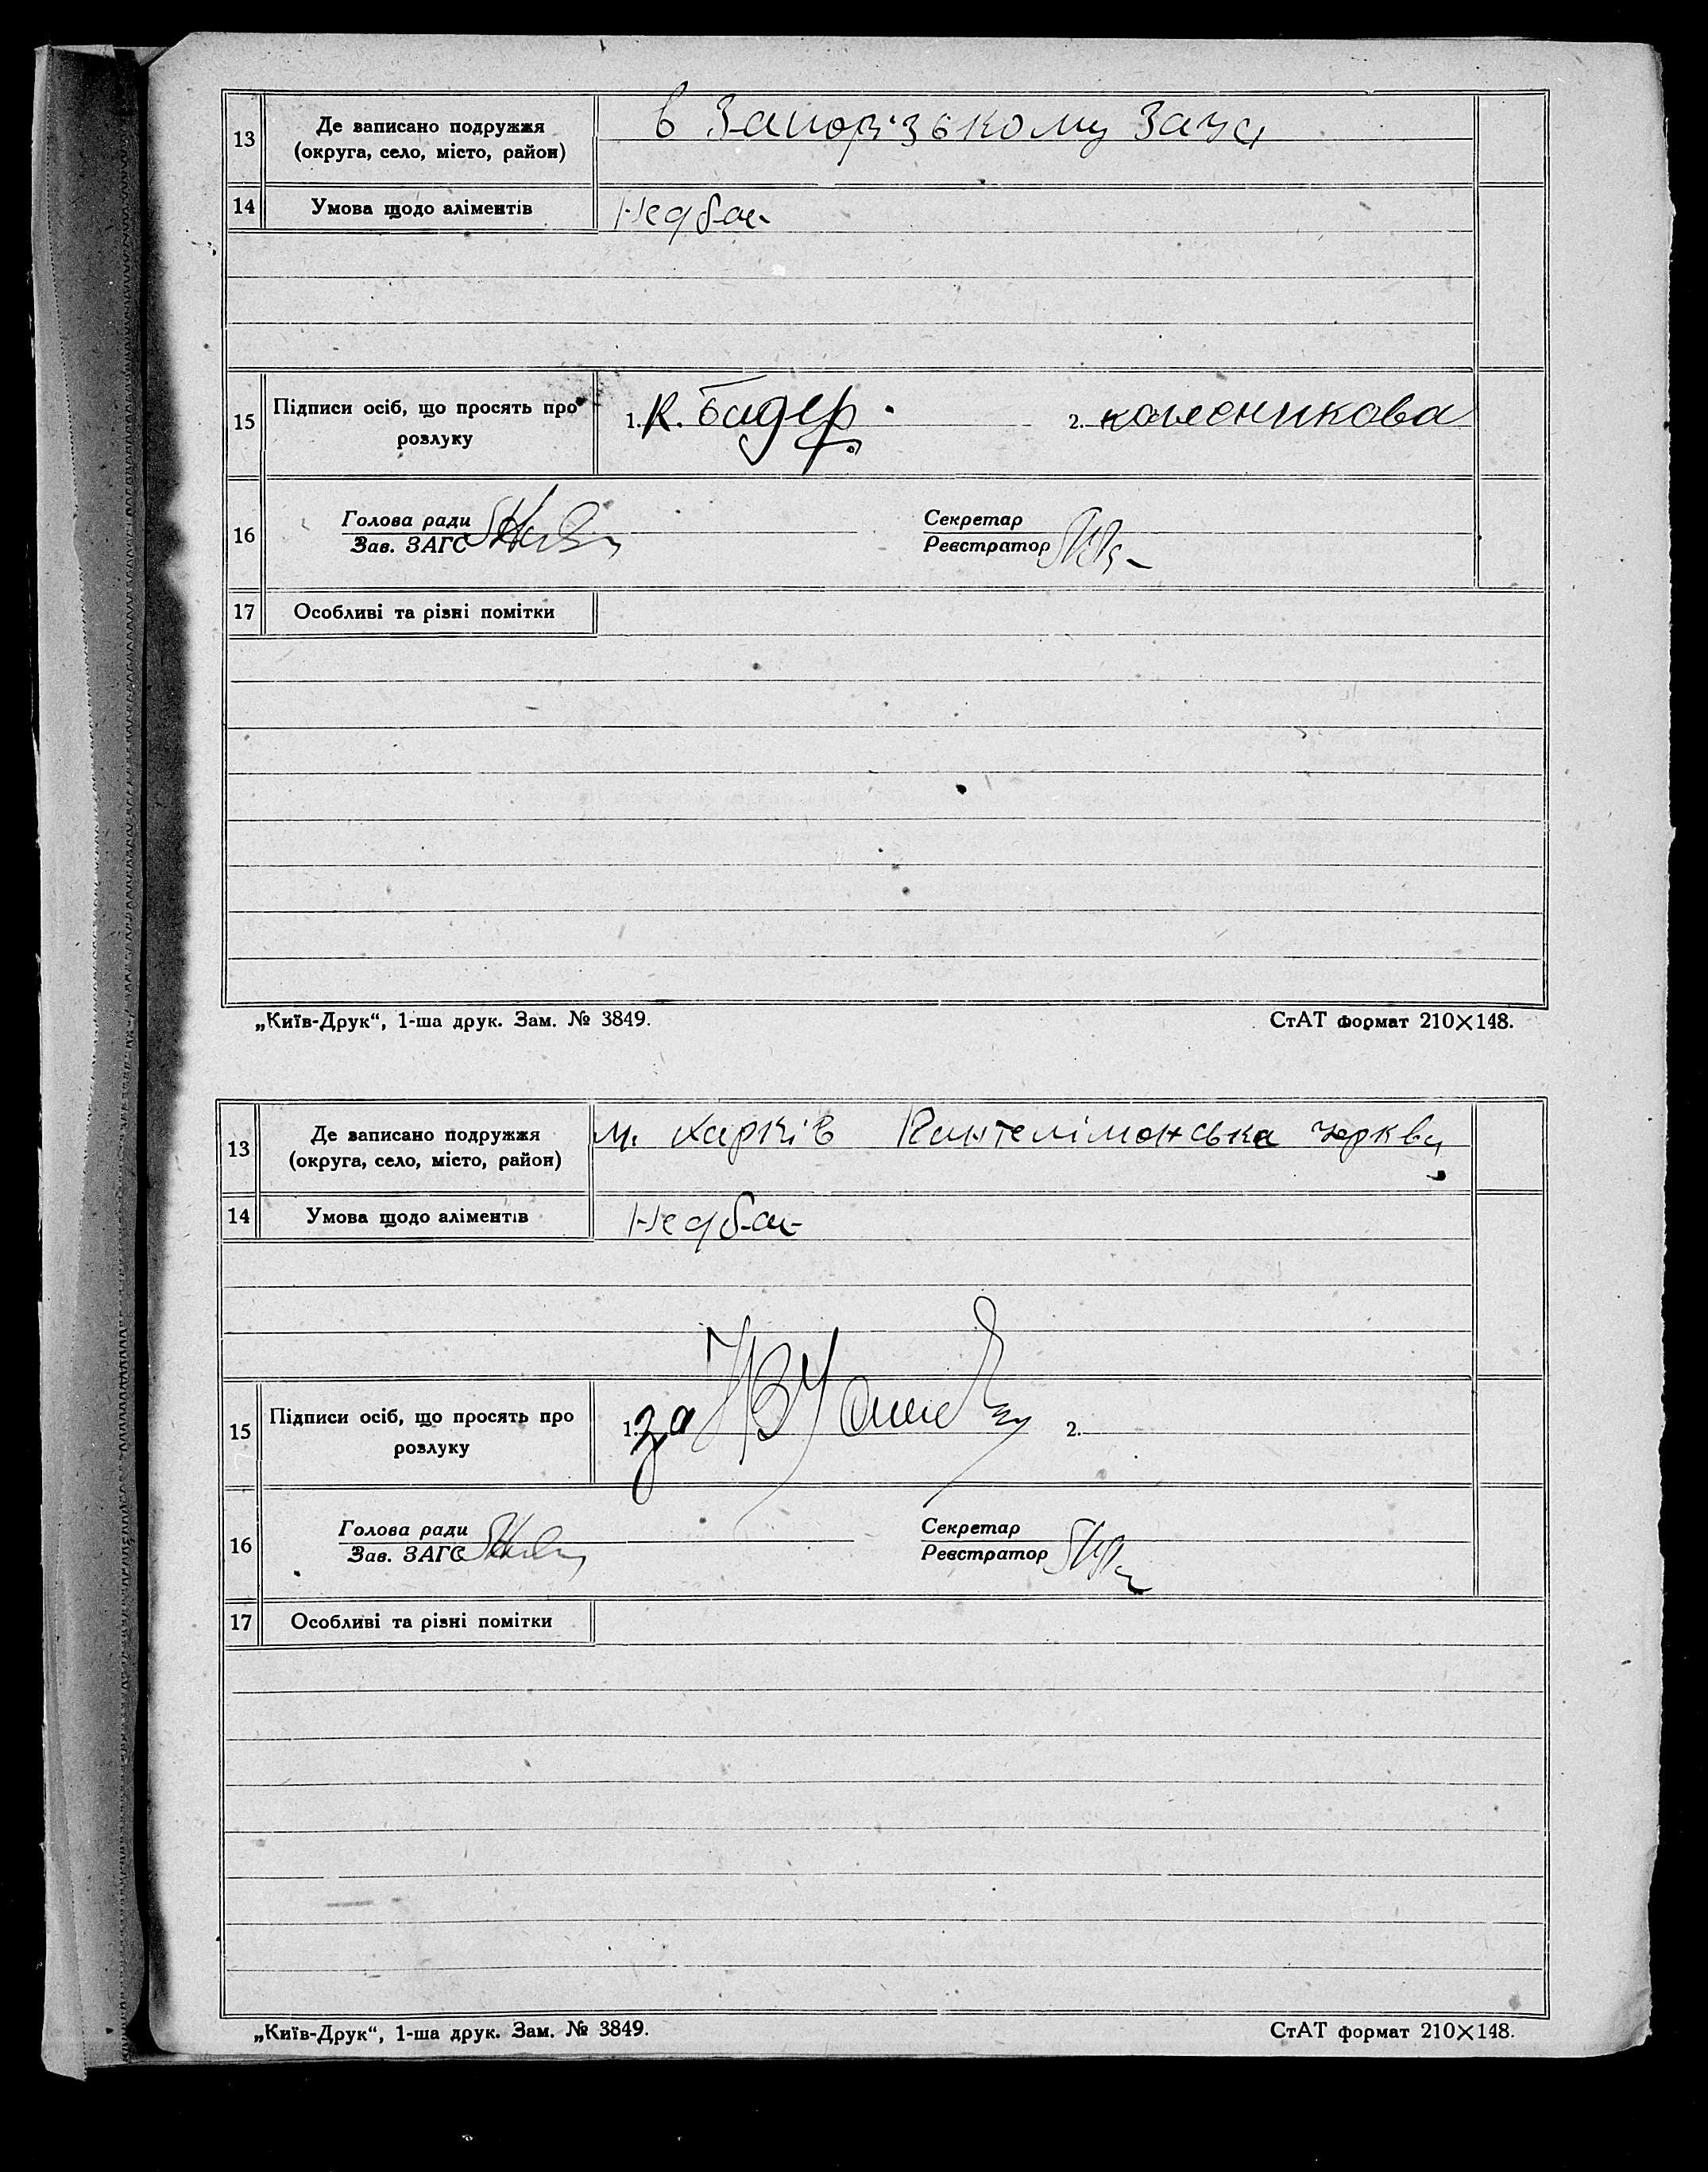 13 Де записано подружжя
(округа, село, місто, район)
в Запорізькому Загсі
14 Умова щодо аліментів
15 Підписи осіб, що просять про
розлуку
1. К. Бадер. 2. колесникова
16 Голова ради Секретар
Зав. ЗАГС Реєстратор
17 Особливі та різні помітки
„Київ-Друк“, 1-ша друк. Зам. № 3849. СтАТ формат 210×148.
13 Де записано подружжя
(округа, село, місто, район)
м. Харків Пантелімонська черква
14 Умова щодо аліментів
15 Підписи осіб, що просять про
розлуку
1. за 2.
16 Голова ради Секретар
Зав. ЗАГС Реєстратор
17 Особливі та різні помітки
„Київ-Друк“, 1-ша друк. Зам. № 3849. СтАТ формат 210×148.